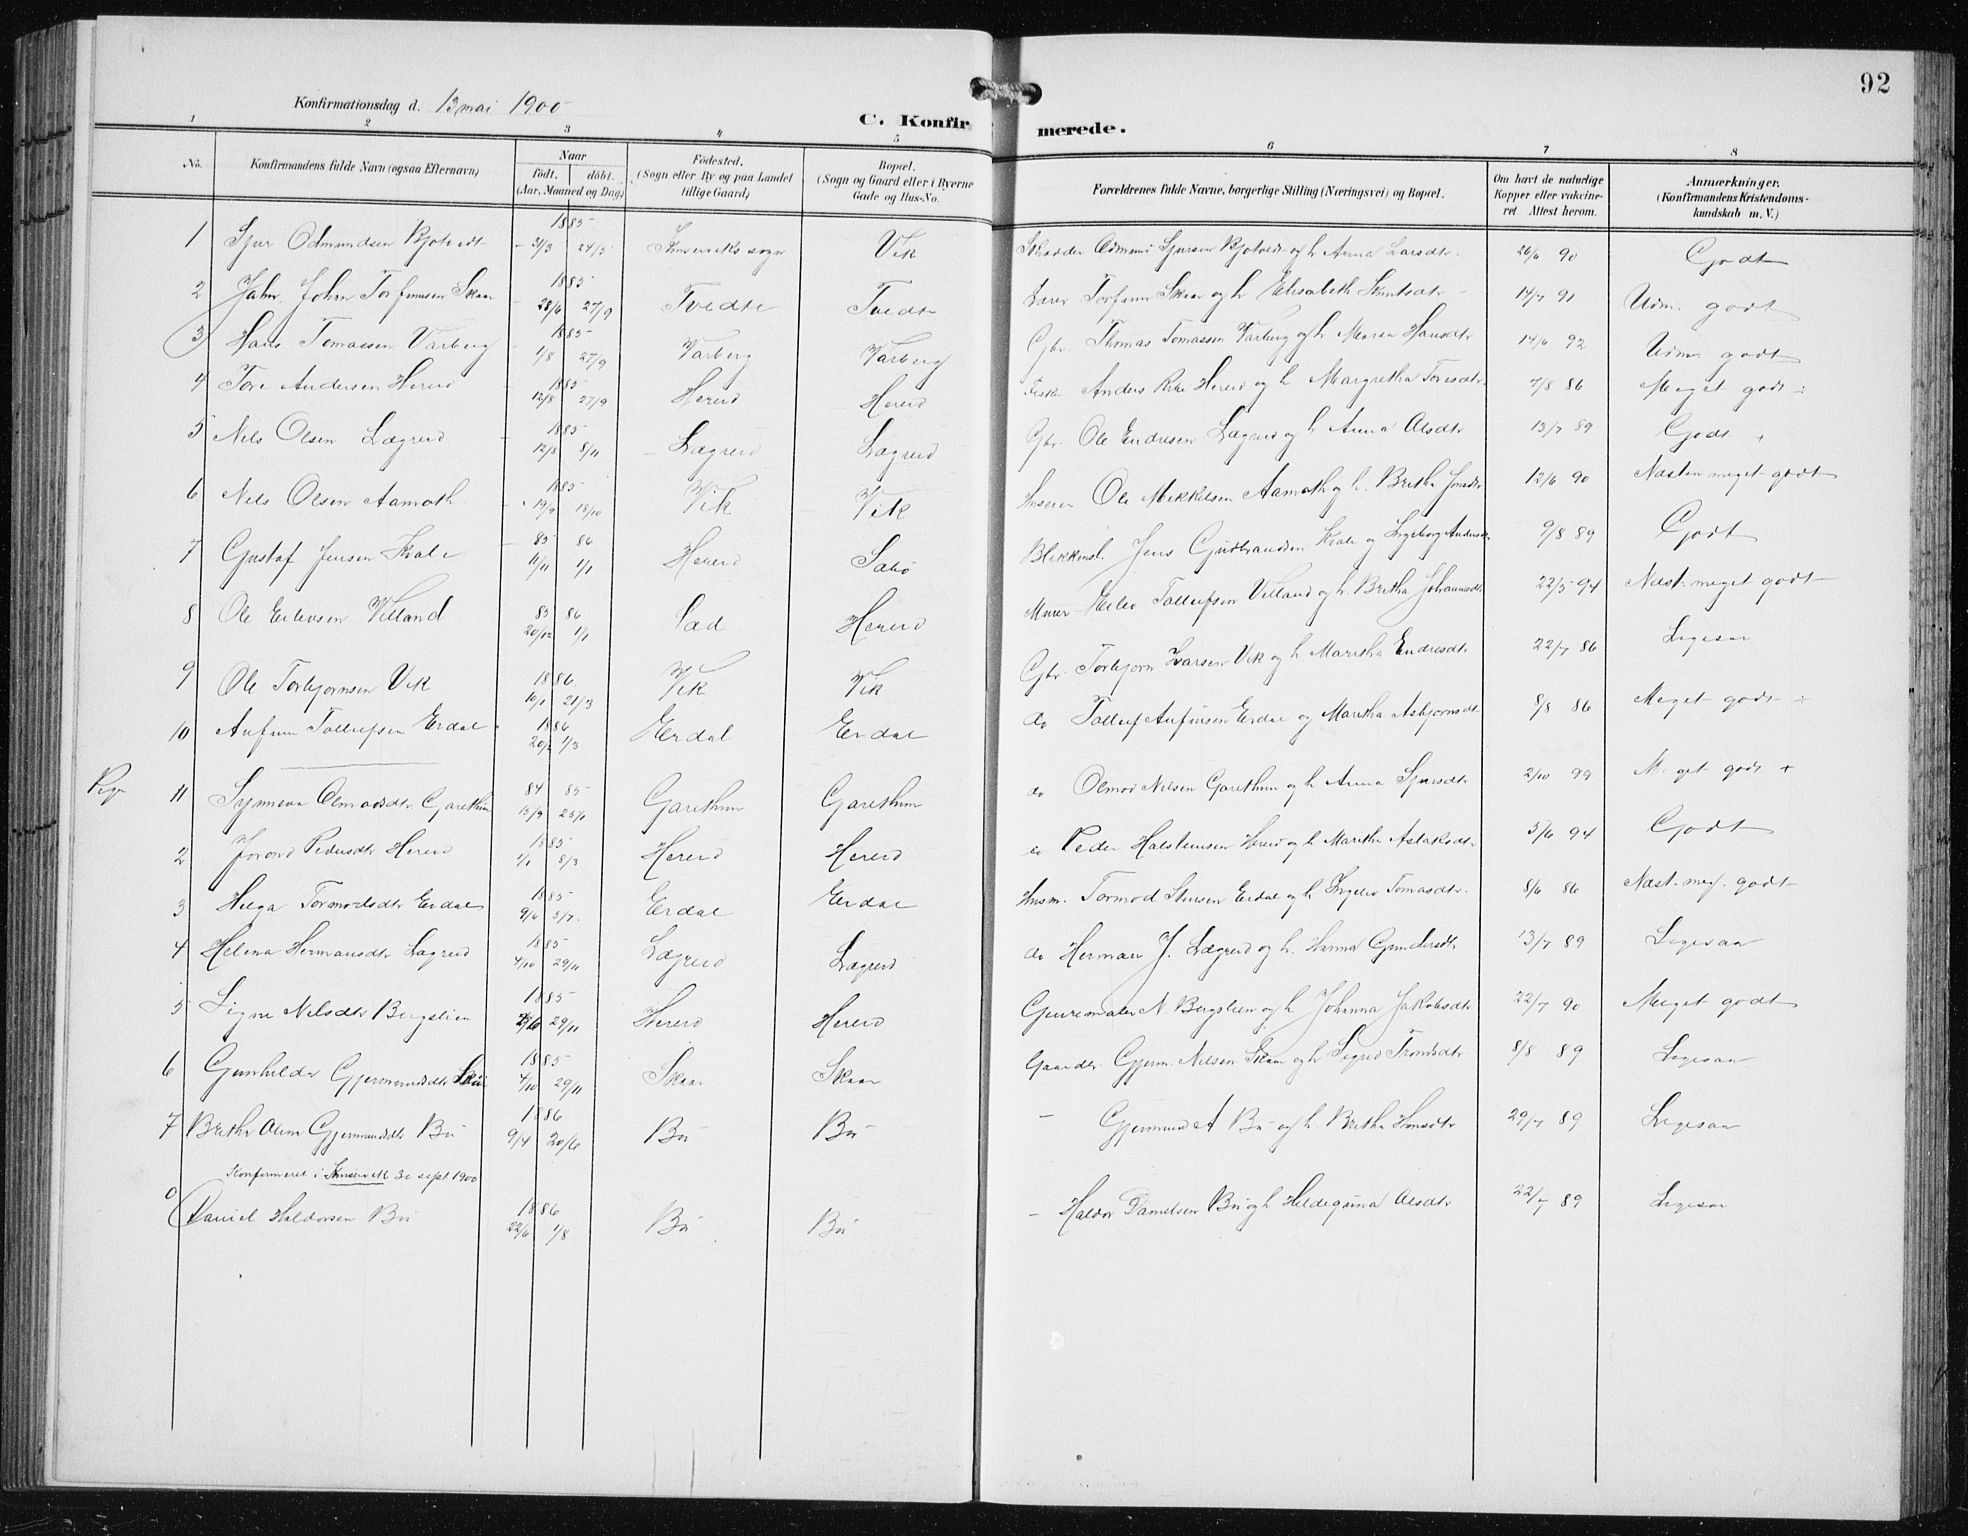 92
Konfirmationsdag d. 13 mai 1900
C. Konfirmerede.
1 2 3 4 5 6 7 8
No. Konfirmandens fulde Navn (ogsaa Efternavn) Naar født. døbt. (Aar, Maaned og Dag) Fødested. (Sogn eller By og paa Landet tillige Gaard) Bopæl. (Sogn og Gaard eller i Byerne Gade og Hus-No. Forældrenes fulde Navne, borgerlige Stilling (Næringsvei) og Bopæl. Om havt de naturlige Kopper eller vakcineret Attest herom. Anmærkninger. (Konfirmandens Kristendomskundskab m. V.)
1 Sjur Odmundsen 1885 21/3 24/5 sogn Vik Odmund Sjursen og h Anna Larsdtr. 26/6 90 Godt
2 John Torfinnsen Skaar 1885 28/6 27/9 Tvedte Tvedte Torfinn Skaar og h Elisabeth 14/7 91 Udm. godt
3 Hans Tomassen Varberg 1885 1/8 27/9 Varberg Varberg Gbr. Thomas Tomassen Varberg og h Hansdtr 14/6 92 Udm. godt
4 Tore Andersen Hereid 1885 12/8 27/9 Hereid Hereid Anders Hereid og h Margretha Toresdtr 7/8 86 Meget godt ÷
5 Nils Olsen Lægreid 1885 12/8 8/11 Lægreid Lægreid Gbr. Ole Endresen Lægreid og h Anna Olsdtr 13/7 89 Godt
6 Nils Olsen Aamoth 1885 19/9 18/10 Vik Vik Ole Mikkelsen Aamoth og h. Britha 12/6 90 Næsten meget godt
7 Gustaf Jensen Kvale 85 86 10/11 1/1 Hereid Sæbø Blikkensl. Jens Gudbrandsen Kvale og Ingeborg Andersdtr 9/8 89 Godt
8 Ole Eilevsen Villand 85 86 20/12 1/1 Sæd Hereid Murer Eilev Tollefsen Villand og h. Britha Johannesdtr 22/5 94 Næst. meget godt
9 Ole Torbjørnsen Vik 1886 10/1 21/3 Vik Vik Gbr. Torbjørn Larsen Vik og h Maritha Endresdtr 22/7 86 Ligesaa
10 Anfinn Tollefsen Erdal 1886 1/3 Erdal Erdal do Tollef Anfinsen Erdal og Maritha Asbjørnsdt 8/8 86 Meget godt ÷
Pige 11 Synneva Olmodsdtr Garethun 84 85 15/9 25/1 Garethun Garethun do Olmod Nilsen Garethun og h Anna Sjursdtr 2/10 99 Meget godt +
2 Pedersdtr Hereid 1885 1/1 8/3 Hereid Hereid do Peder Halsteinsen Hereid og h Maritha Aslaksdtr 5/6 94 Godt
3 Helga Tormodsdtr Erdal 1885 9/6 5/7 Erdal Erdal Husm. Tormod Erdal og h Tomasdtr. 8/6 86 Næst. meg. godt
4 Helena Hermansdtr Lægreid 1885 4/10 29/11 Lægreid Lægreid do Herman J. Lægreid og h. Hanna Gundersdtr 13/7 89 Ligesaa
5 Signe Nilsdtr Bergslien 1885 29/11 Hereid Hereid N. Bergslien og h Johanna Jakobsdtr 22/7 90 Meget godt
6 Gunhilda Gjermundsdtr Skaar 1885 4/10 29/11 Skaar Skaar Gaardbr Gjerm. Nilsen Skaar og h Sigrid Trondsdtr 8/8 89 Ligesaa
7 Britha Gjermundsdtr Bu 1886 9/4 20/6 Bu Bu — Gjermund A Bu og h. Britha 29/7 89 Ligesaa
Konfirmeret i 30 sept 1900
Daniel Haldorsen Bu 1886 22/6 1/8 Bu Bu — Haldor Danielsen Bu og h Hildeguna Olsdtr 22/7 89 Ligesaa